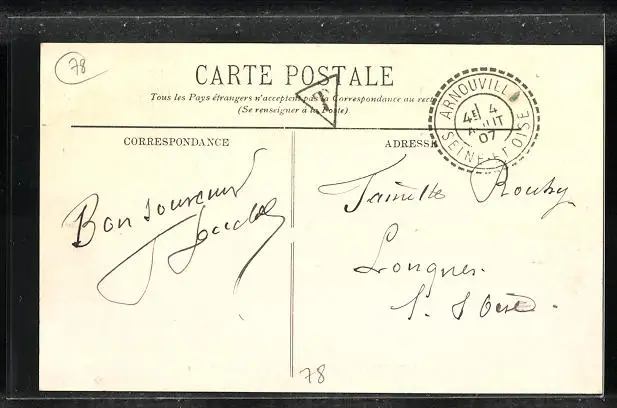 78
CARTE POSTALE
Tous les Pays étrangers n'acceptent pas la Correspondance au recto
(Se renseigner à la Poste)
T
ARNOUVILLE
4E 4
AOUT
07
SEINE-ET-OISE
CORRESPONDANCE
ADRESSE
Bon Souvenir
Famille Rouhy
Longnes
S. S Oise.
78